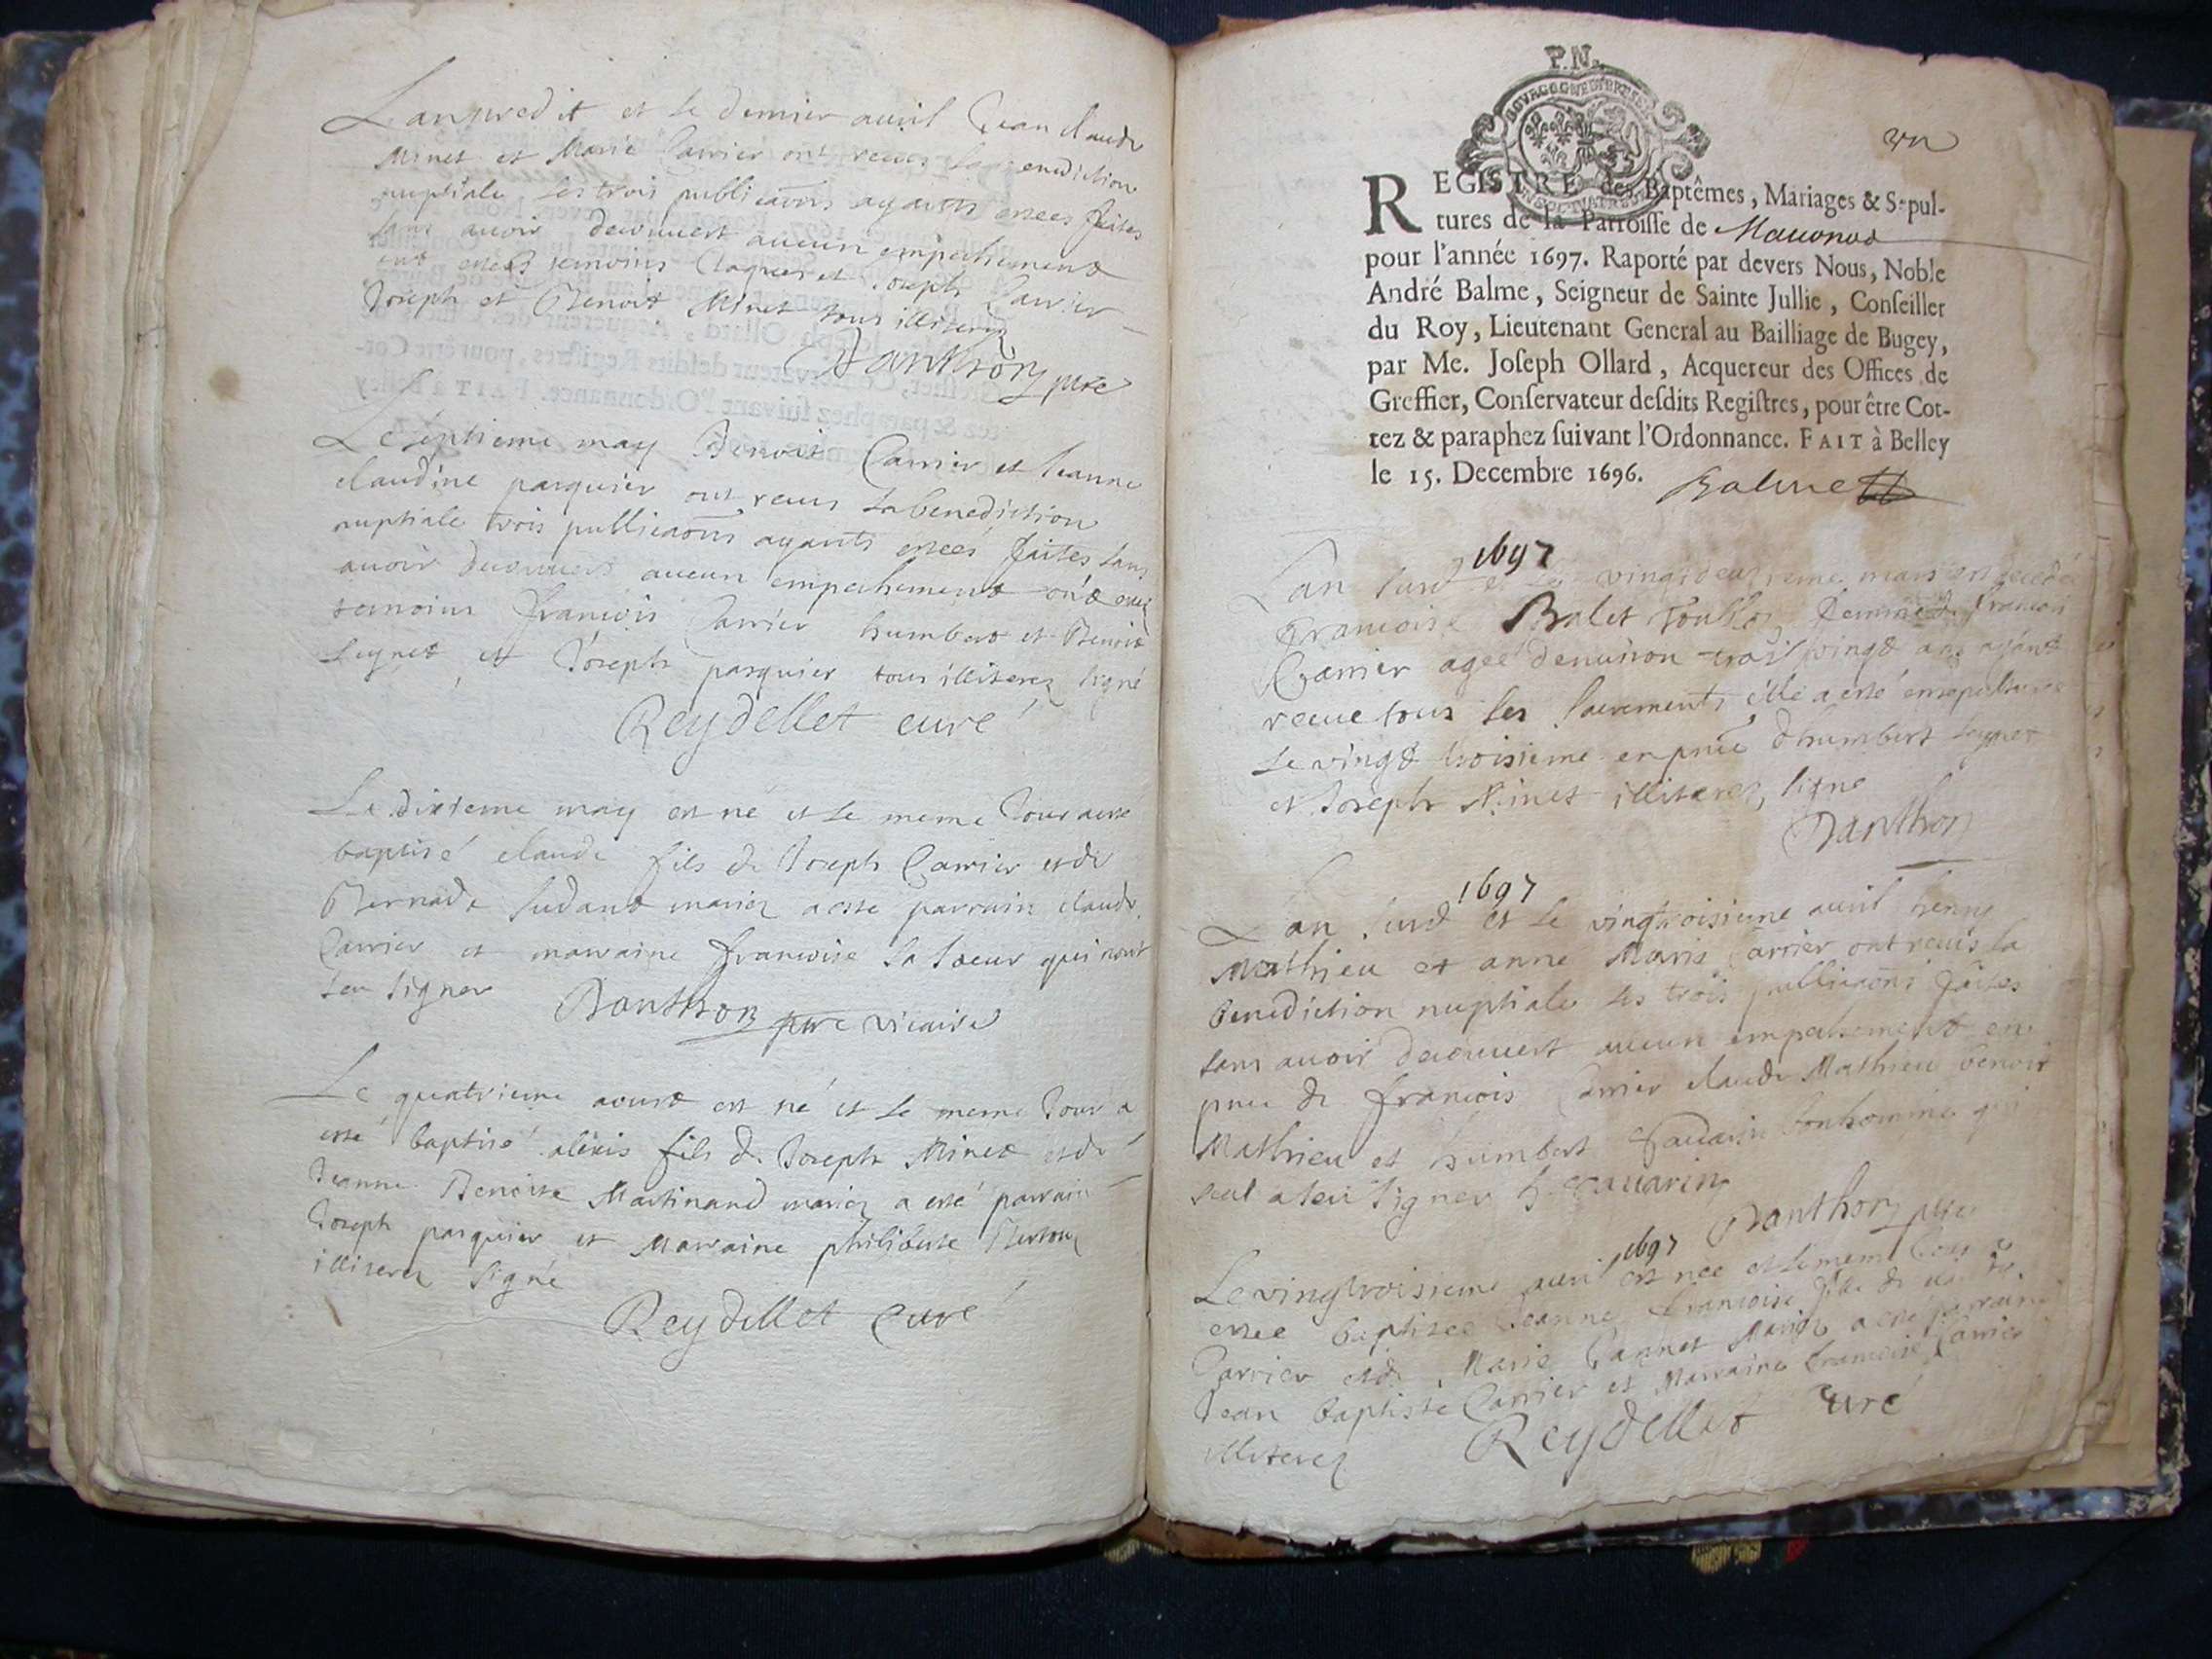 Lanpredit et le dernier auril Jean claude
Minet et Marie Carrier ont receus la benediction
nuptiale les trois publicaons ayants estees faites
sans auoir decouuert aucun empechement
ont estes temoins Jaques et Joseph Carrier
Joseph et Benoit Minet tous illiterez
Danthon pbre
Le septieme may Benoit Carrier et Jeanne
claudine pasquier ont receus la benediction
nuptiale trois publicaons ayants estees faites sans
auoir decouuert aucun empechement ont estez
temoins francois Carrier humbert et Benoit
Seynet et Joseph pasquier tous illiterez signé
Reydellet curé
Le dixieme may est né et le meme Jour a esté
baptisé claude fils de Joseph Carrier et de
Bernade Sudant mariez a esté parrain claude
Carrier et marraine francoise sa soeur qui n'ont
sceu signer
Danthon pbre vicaire
Le quatrieme aoust est né et le meme Jour a
esté baptisé alexis fils de Joseph Minet et de
Jeanne Benoite Martinand mariez a esté parrain
Joseph pasquier et Marraine philiberte
illiterez signé
Reydellet Curé
P.N.
BOURGOGNE ET BRESSE
un
REGISTRE des Baptêmes, Mariages & Sepul-
tures de la Parroisse de Mauonod
pour l'année 1697. Raporté par devers Nous, Noble
André Balme, Seigneur de Sainte Jullie, Conseiller
du Roy, Lieutenant General au Bailliage de Bugey,
par Me. Joseph Ollard, Acquereur des Offices de
Greffier, Conservateur desdits Registres, pour être Cot-
tez & paraphez suivant l'Ordonnance. FAIT à Belley
le 15. Decembre 1696.
Balme
1697
Lan susd et le vingtdeuxieme mars est decedé
Francoise Balet femme de francois
Carrier agée denuiron trois vingt ans ayant
receue tous les sacrements elle a esté ensepulturée
le vingt troisieme en pnce d'humbert Seynet
et Joseph Minet illiterez, signe
Danthon
1697
Lan susd et le vingtroisieme auril henry
Mathieu et anne Marie Carrier ont receus la
Benediction nuptiale les trois publicaons faites
sans auoir decouuert aucun empechement en
pnce de francois Carrier claude Mathieu benoit
Mathieu et humbert Sauarin bonhomme qui
seul a sceu signer h. Sauarin
Danthon pbre
1697
Le vingtroisieme auril est née et le meme Jour a
estee baptisee Jeanne francoise fille de claude
Carrier et de Marie Jannet Mariez a esté parrain
Jean baptiste Carrier et Marraine francoise Carrier
illiterez
Reydellet Curé